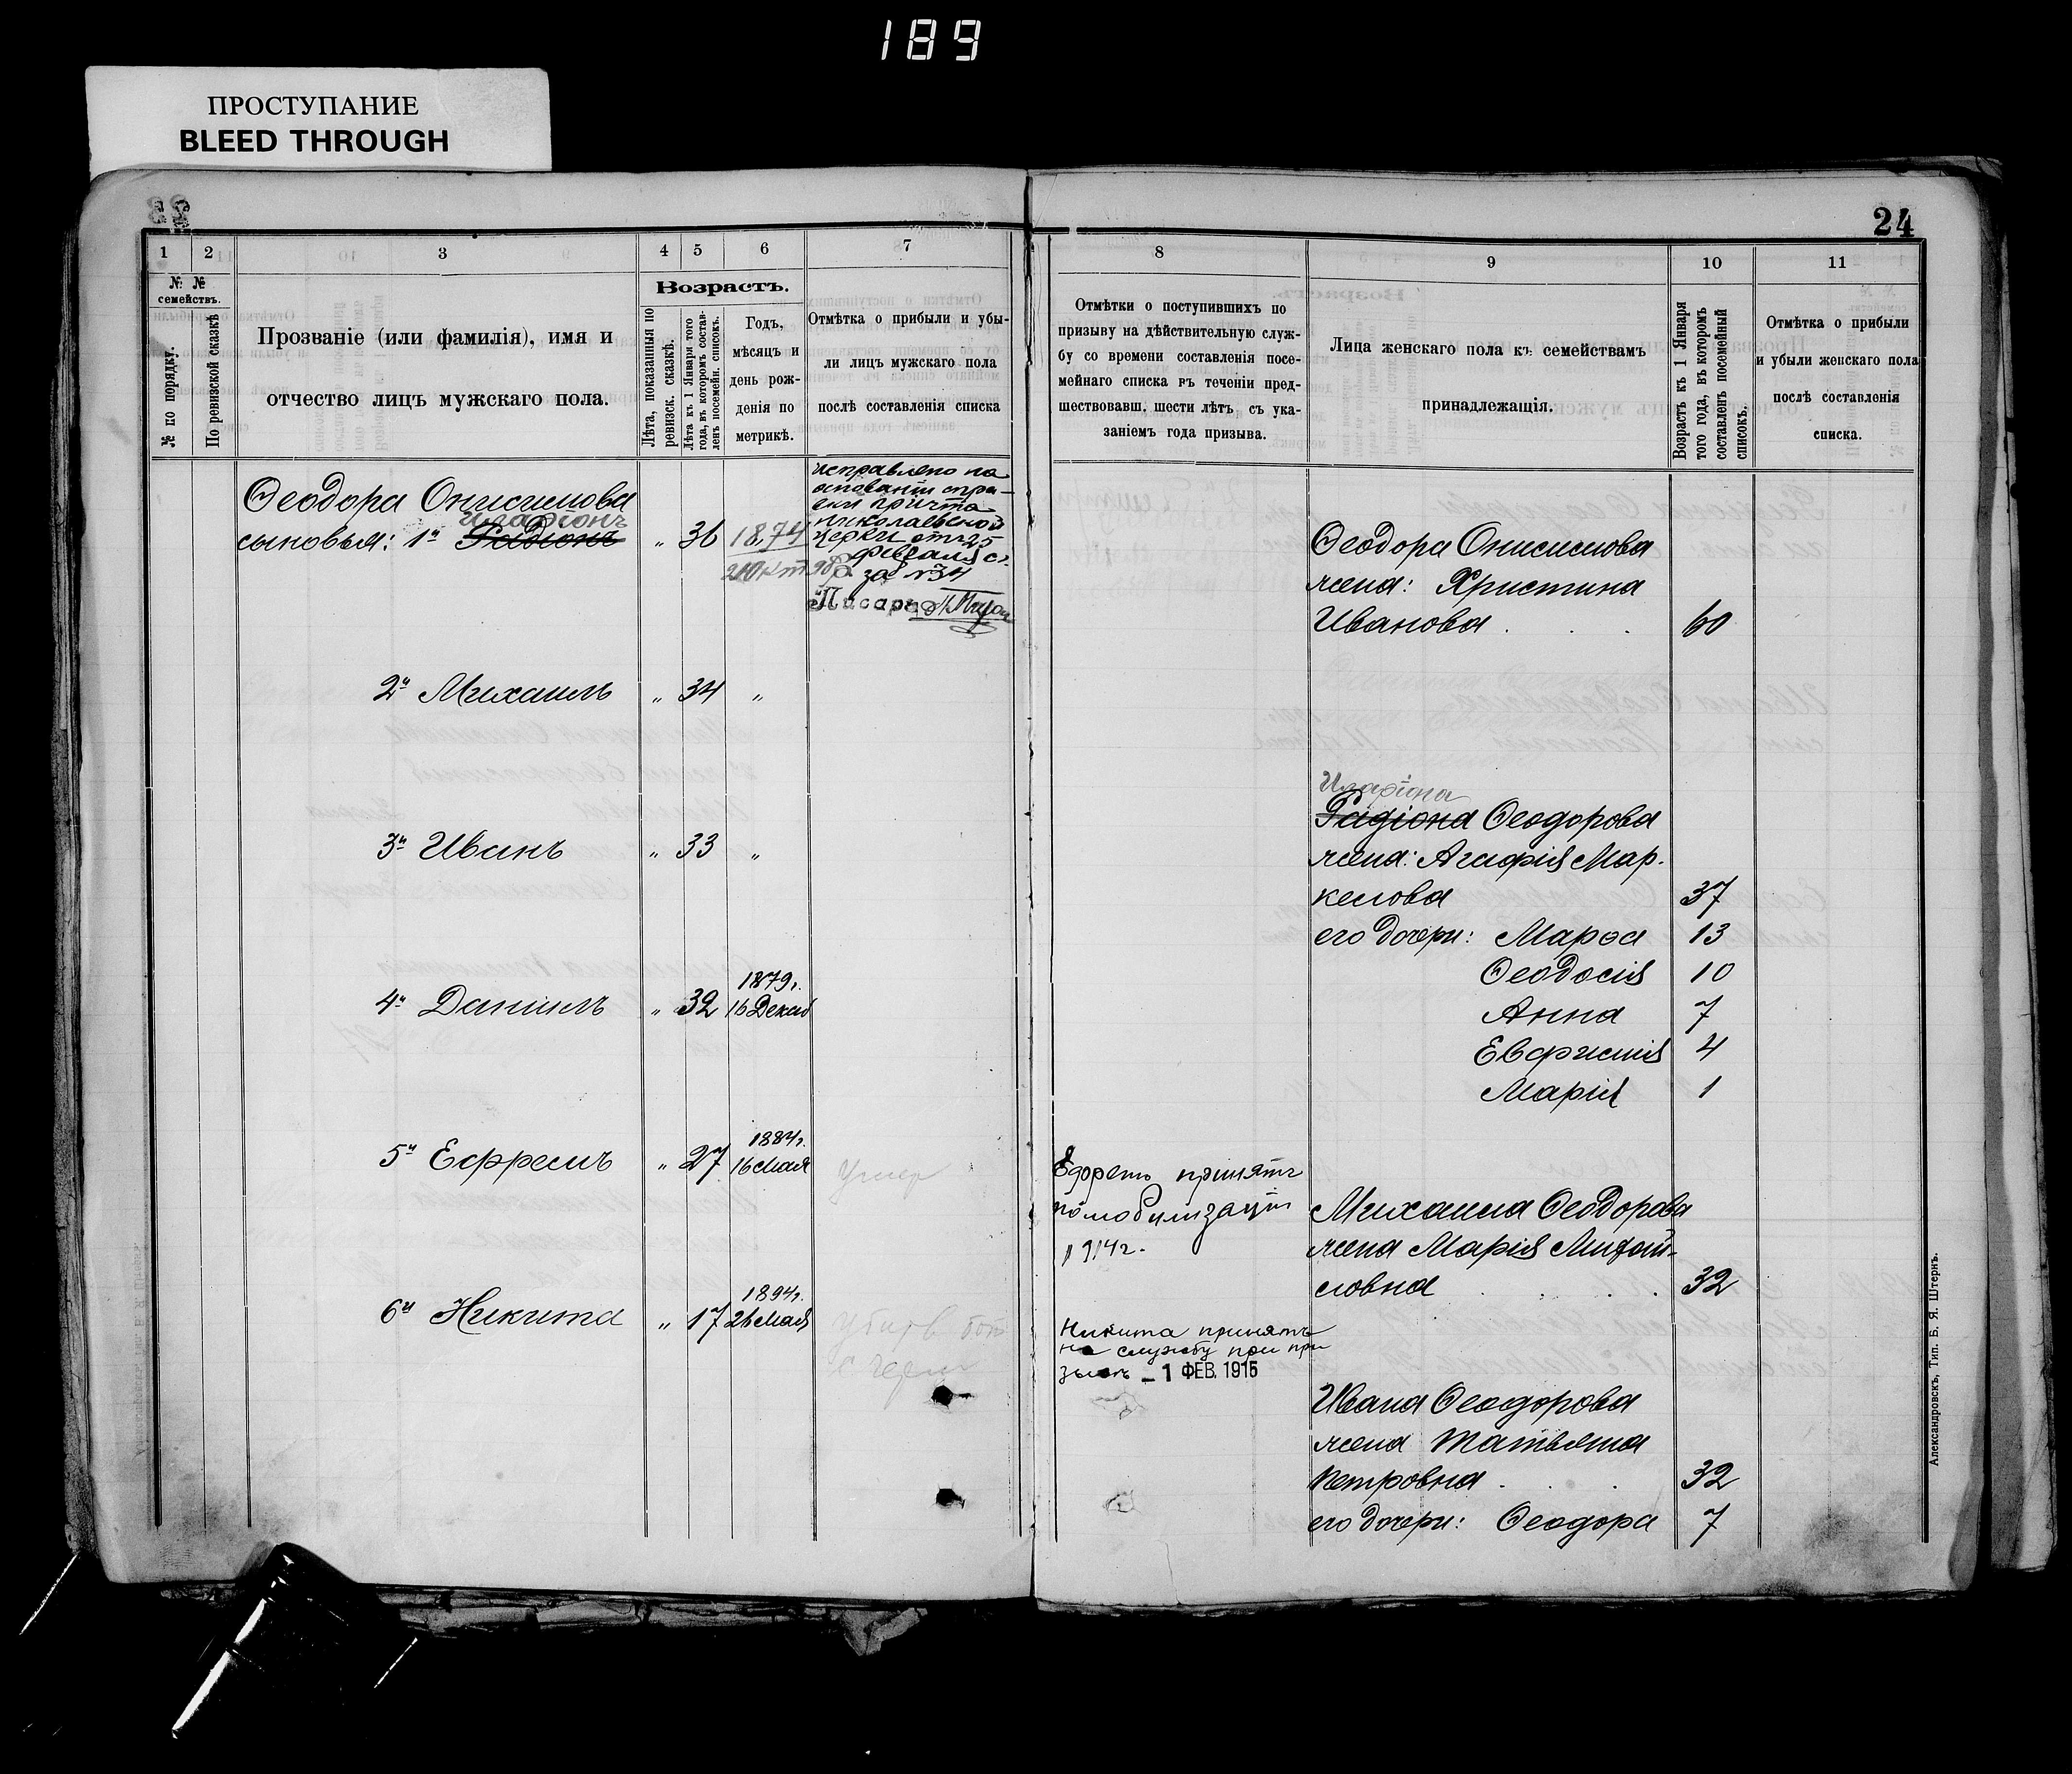 189
ПРОСТУПАНИЕ
BLEED THROUGH
24
1 2 3 4 5 6 7
№ №
семействъ.
№ по порядку.
По ревизской сказкѣ
Прозваніе (или фамилія), имя и
отчество лицъ мужскаго пола.
Возрастъ.
Лѣта, показанныя по
ревизск. сказкѣ.
Лѣта къ 1 Января того
года, въ которомъ состав-
ленъ посемейн. списокъ.
Годъ,
мѣсяцъ и
день рож-
денія по
метрикѣ.
Отмѣтка о прибыли и убы-
ли лицъ мужскаго пола
послѣ составленія списка
Ѳеодора Онисимова
Иларіонъ
сыновья: 1й Радіонъ " 36 1874
исправлено на
основаніи спра-
вки причта
николаевской
церкви отъ 25
февраля с.
за № 34
Писарь
2й Михаилъ " 34 "
3й Иванъ " 33 "
1879г.
4й Даніилъ " 32 16 Декаб
1884г.
5й Ефремъ " 27 16 мая Умер
1894г.
6й Никита " 17 26 мая
8 9 10 11
Отмѣтки о поступившихъ по
призыву на дѣйствительную служ-
бу со времени составленія посе-
мейнаго списка въ теченіи пред-
шествовавш. шести лѣтъ съ ука-
заніемъ года призыва.
Лица женскаго пола къ семействамъ
принадлежащія.
Возрастъ къ 1 Января
того года, въ которомъ
составленъ посемейный
списокъ.
Отмѣтка о прибыли
и убыли женскаго пола
послѣ составленія
списка.
Ѳеодора Онисимова
жена: Христина
Иванова . . . 60
Иларіона
Радіона Ѳеодорова
жена: Агафія Мар-
келова 37
его дочери: Марѳа 13
Ѳеодосія 10
Анна 7
Евфимія 4
Марія 1
Ефремъ принятъ
по мобилизаціи
1914г.
Михаила Ѳеодорова
жена Марія Михай-
ловна . . . 32
Никита принятъ
на службу при при
зывѣ - 1 ФЕВ. 1915
Ивана Ѳеодорова
жена Татьяна
Петровна . . . 32
его дочери: Ѳеодора 7
Александровскъ, Тип. Б. Я. Штернъ.